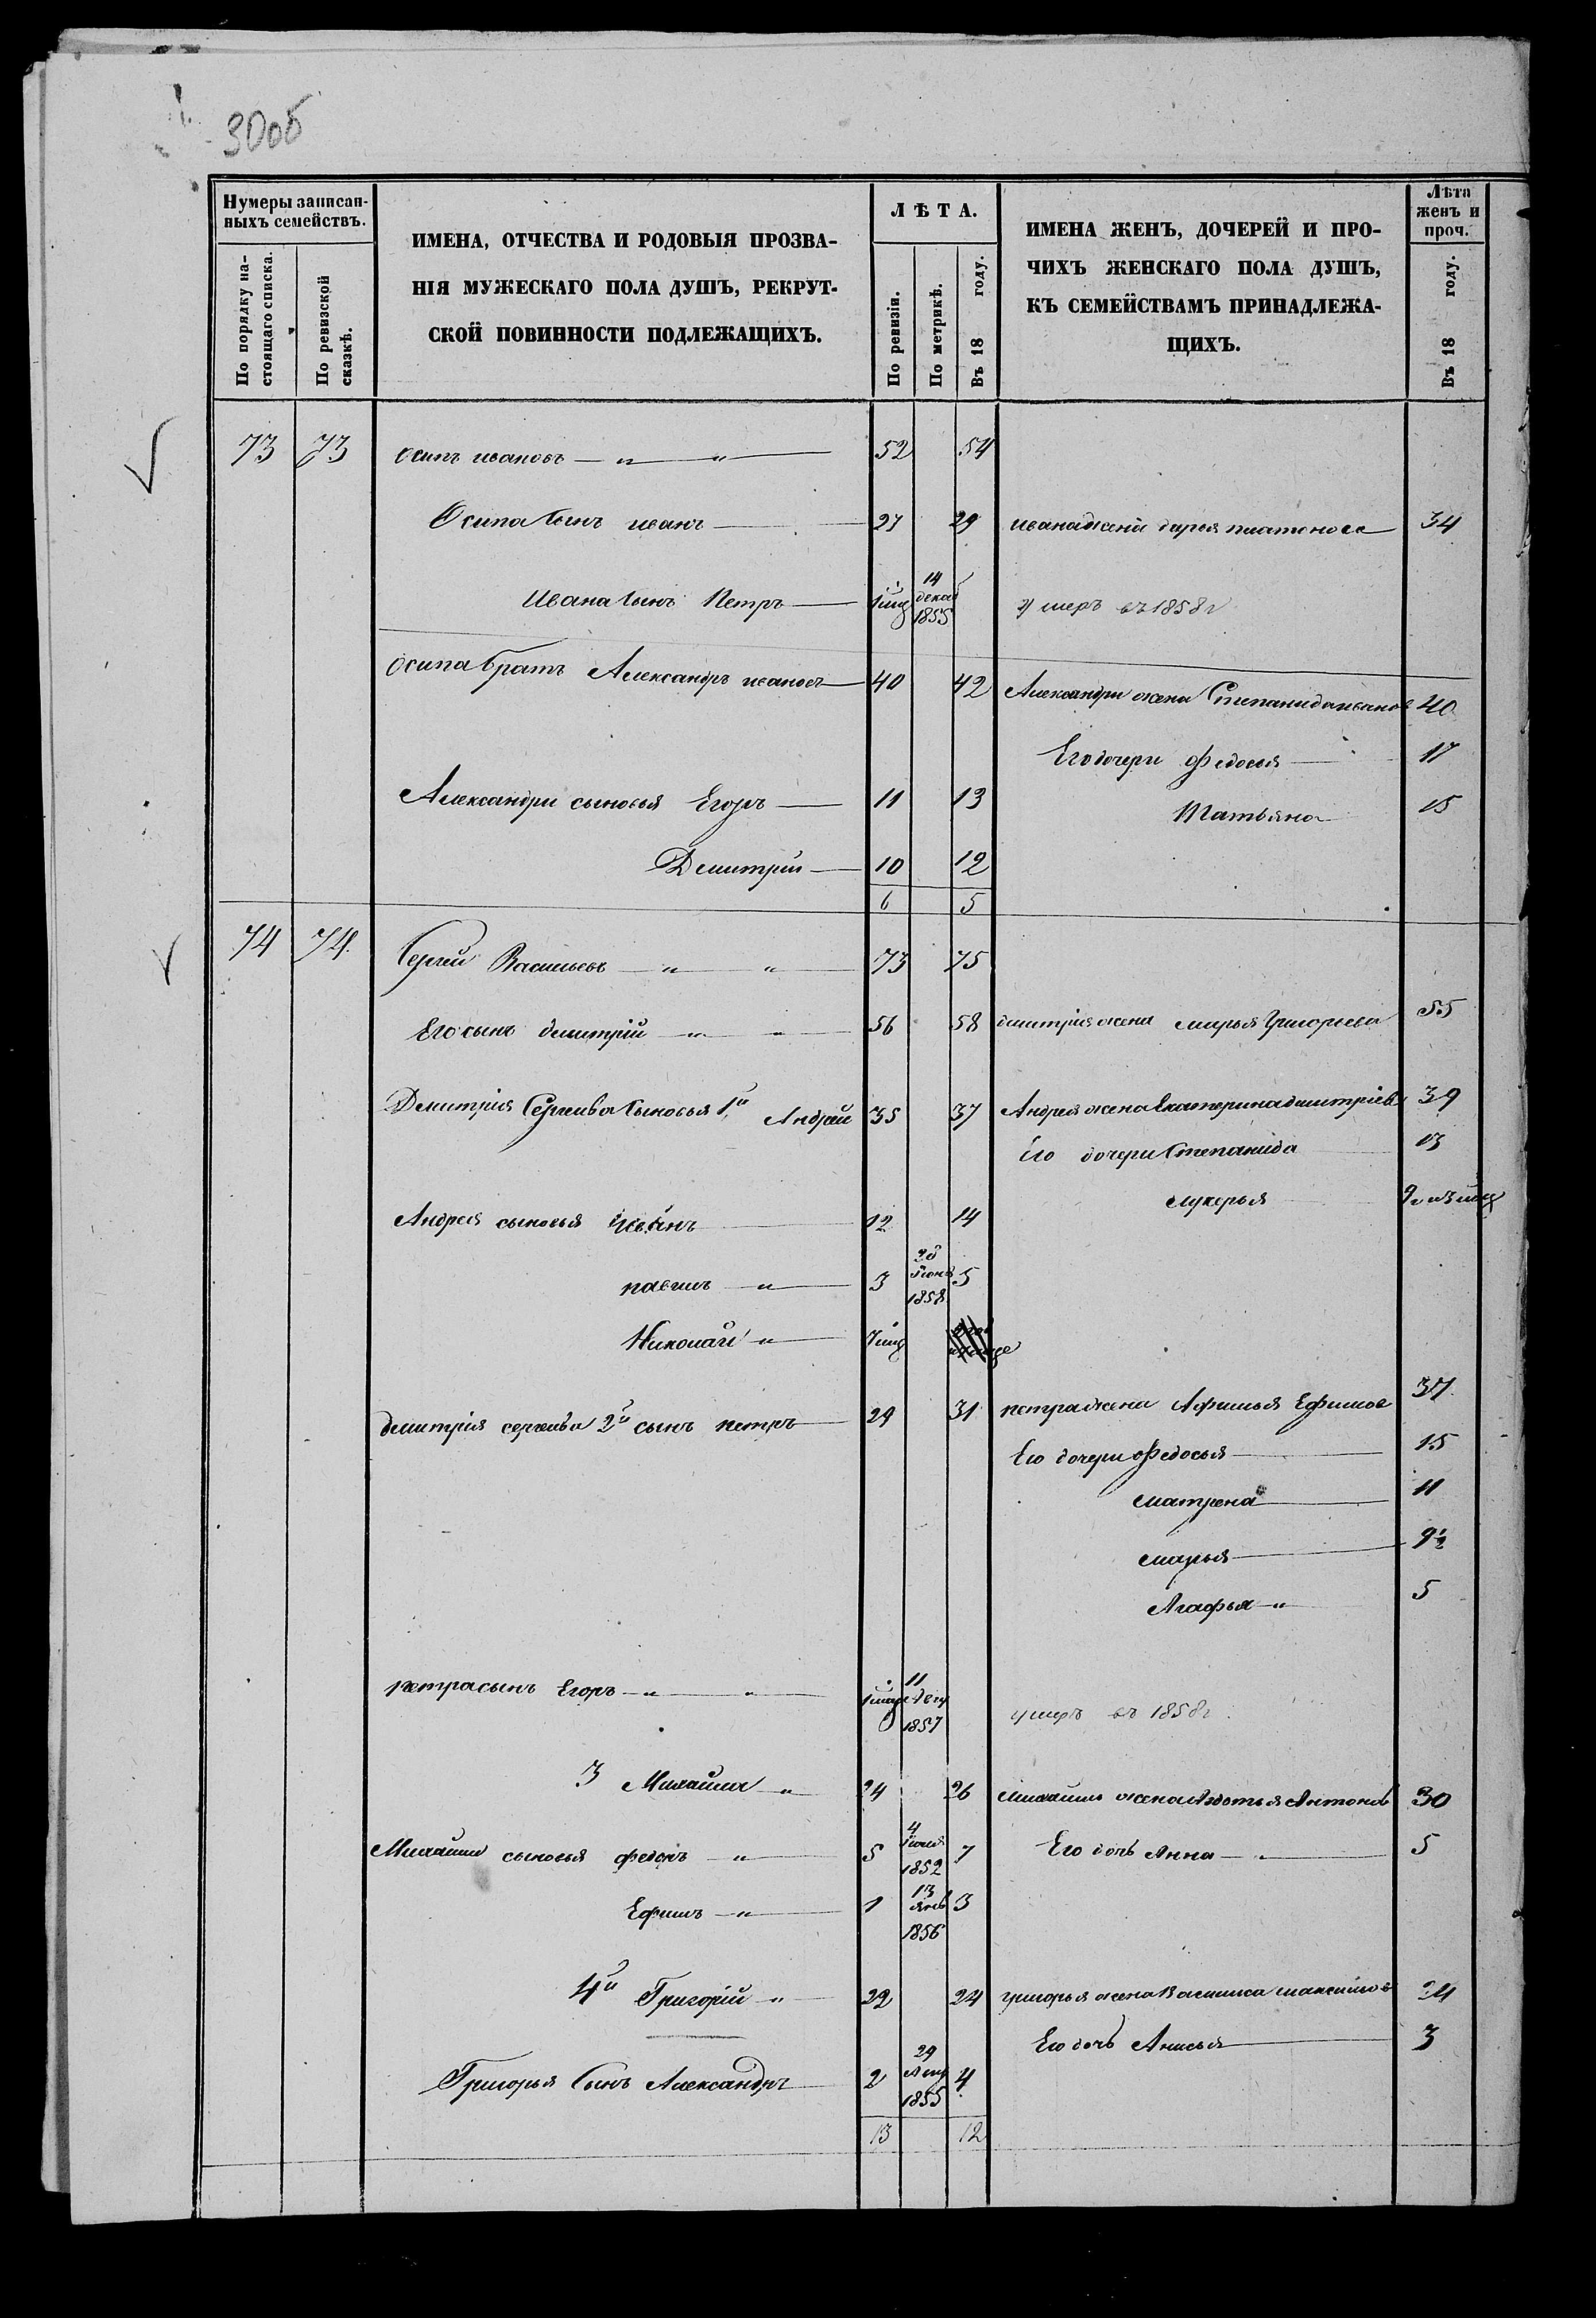 30об
Нумеры записан-
ныхъ семействъ.
По порядку на-
стоящаго списка.
По ревизской
сказкѣ.
ИМЕНА, ОТЧЕСТВА И РОДОВЫЯ ПРОЗВА-
НІЯ МУЖЕСКАГО ПОЛА ДУШЪ, РЕКРУТ-
СКОЙ ПОВИННОСТИ ПОДЛЕЖАЩИХЪ.
ЛѢТА.
По ревизіи.
По метрикѣ.
Въ 18 году.
ИМЕНА ЖЕНЪ, ДОЧЕРЕЙ И ПРО-
ЧИХЪ ЖЕНСКАГО ПОЛА ДУШЪ,
КЪ СЕМЕЙСТВАМЪ ПРИНАДЛЕЖА-
ЩИХЪ.
Лѣта
женъ и
проч.
Въ 18 году.
73 73 Осипъ ивановъ — „ — „ — 52 54
Осипа сынъ иванъ — 27 29 ивана жена дарья платонова 34
Ивана сынъ Петръ — 1 мц 14 декаб 1855 умеръ въ 1858 г
Осипа братъ Александръ ивановъ — 40 42 Александры жена Степанида иванов 40
Его дочери Федосья — 17
Александры сыновья Егоръ — 11 13 Татьяна 15
Дмитрій — 10 12
6 5
74 74. Сергей Васильевъ — „ — „ — 73 75
Его сынъ дмитрій — „ — „ — 56 58 дмитрія жена марья Григорьева 55
Дмитрія Сергеива сыновья 1й Андрей 35 37 Андрея жена Екатерина дмитріев 39
Его дочери Степанида 13
Андрея сыновья Иванъ — 12 14 лукерья
павилъ — „ — 3 28 Іюня 1858 5
Николай „ — 7 мц
дмитрія сергеива 2й сынъ петръ — 29 31 петра жена Афимья Ефимов 37
Его дочери Федосья — 15
матрена — 11
марья — 9½
Агафья — „ 5
петра сынъ Егоръ — „ — „ — 11 1857 умеръ въ 1858 г.
3 Михайла „ 24 26 михайлы жена Авдотья Антонов 30
Михайлы сыновья федоръ — „ — 5 4 1852 7 Его дочь Анна — „ — 5
Ефимъ — „ — 1 13 янв 1856 3
4й Григорій — „ — 22 24 григорья жена Василиса максимов 24
Его дочь Анисья — 3
Григорья сынъ Александръ 2 29 Авг 1855 4
13 12